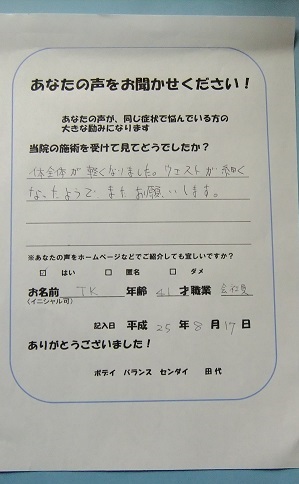 あなたの声をお聞かせください！
あなたの声が、同じ症状で悩んでいる方の
大きな励みになります
当院の施術を受けて見てどうでしたか？
体全体が軽くなりました。ウエストが細く
なったようで またお願いします。
※あなたの声をホームページなどでご紹介しても宜しいですか？
☑ はい □ 匿名 □ ダメ
お名前 TK 年齢 41 才職業 会社員
（イニシャル可）
記入日 平成 25 年 8 月 17 日
ありがとうございました！
ボディ バランス センダイ 田代